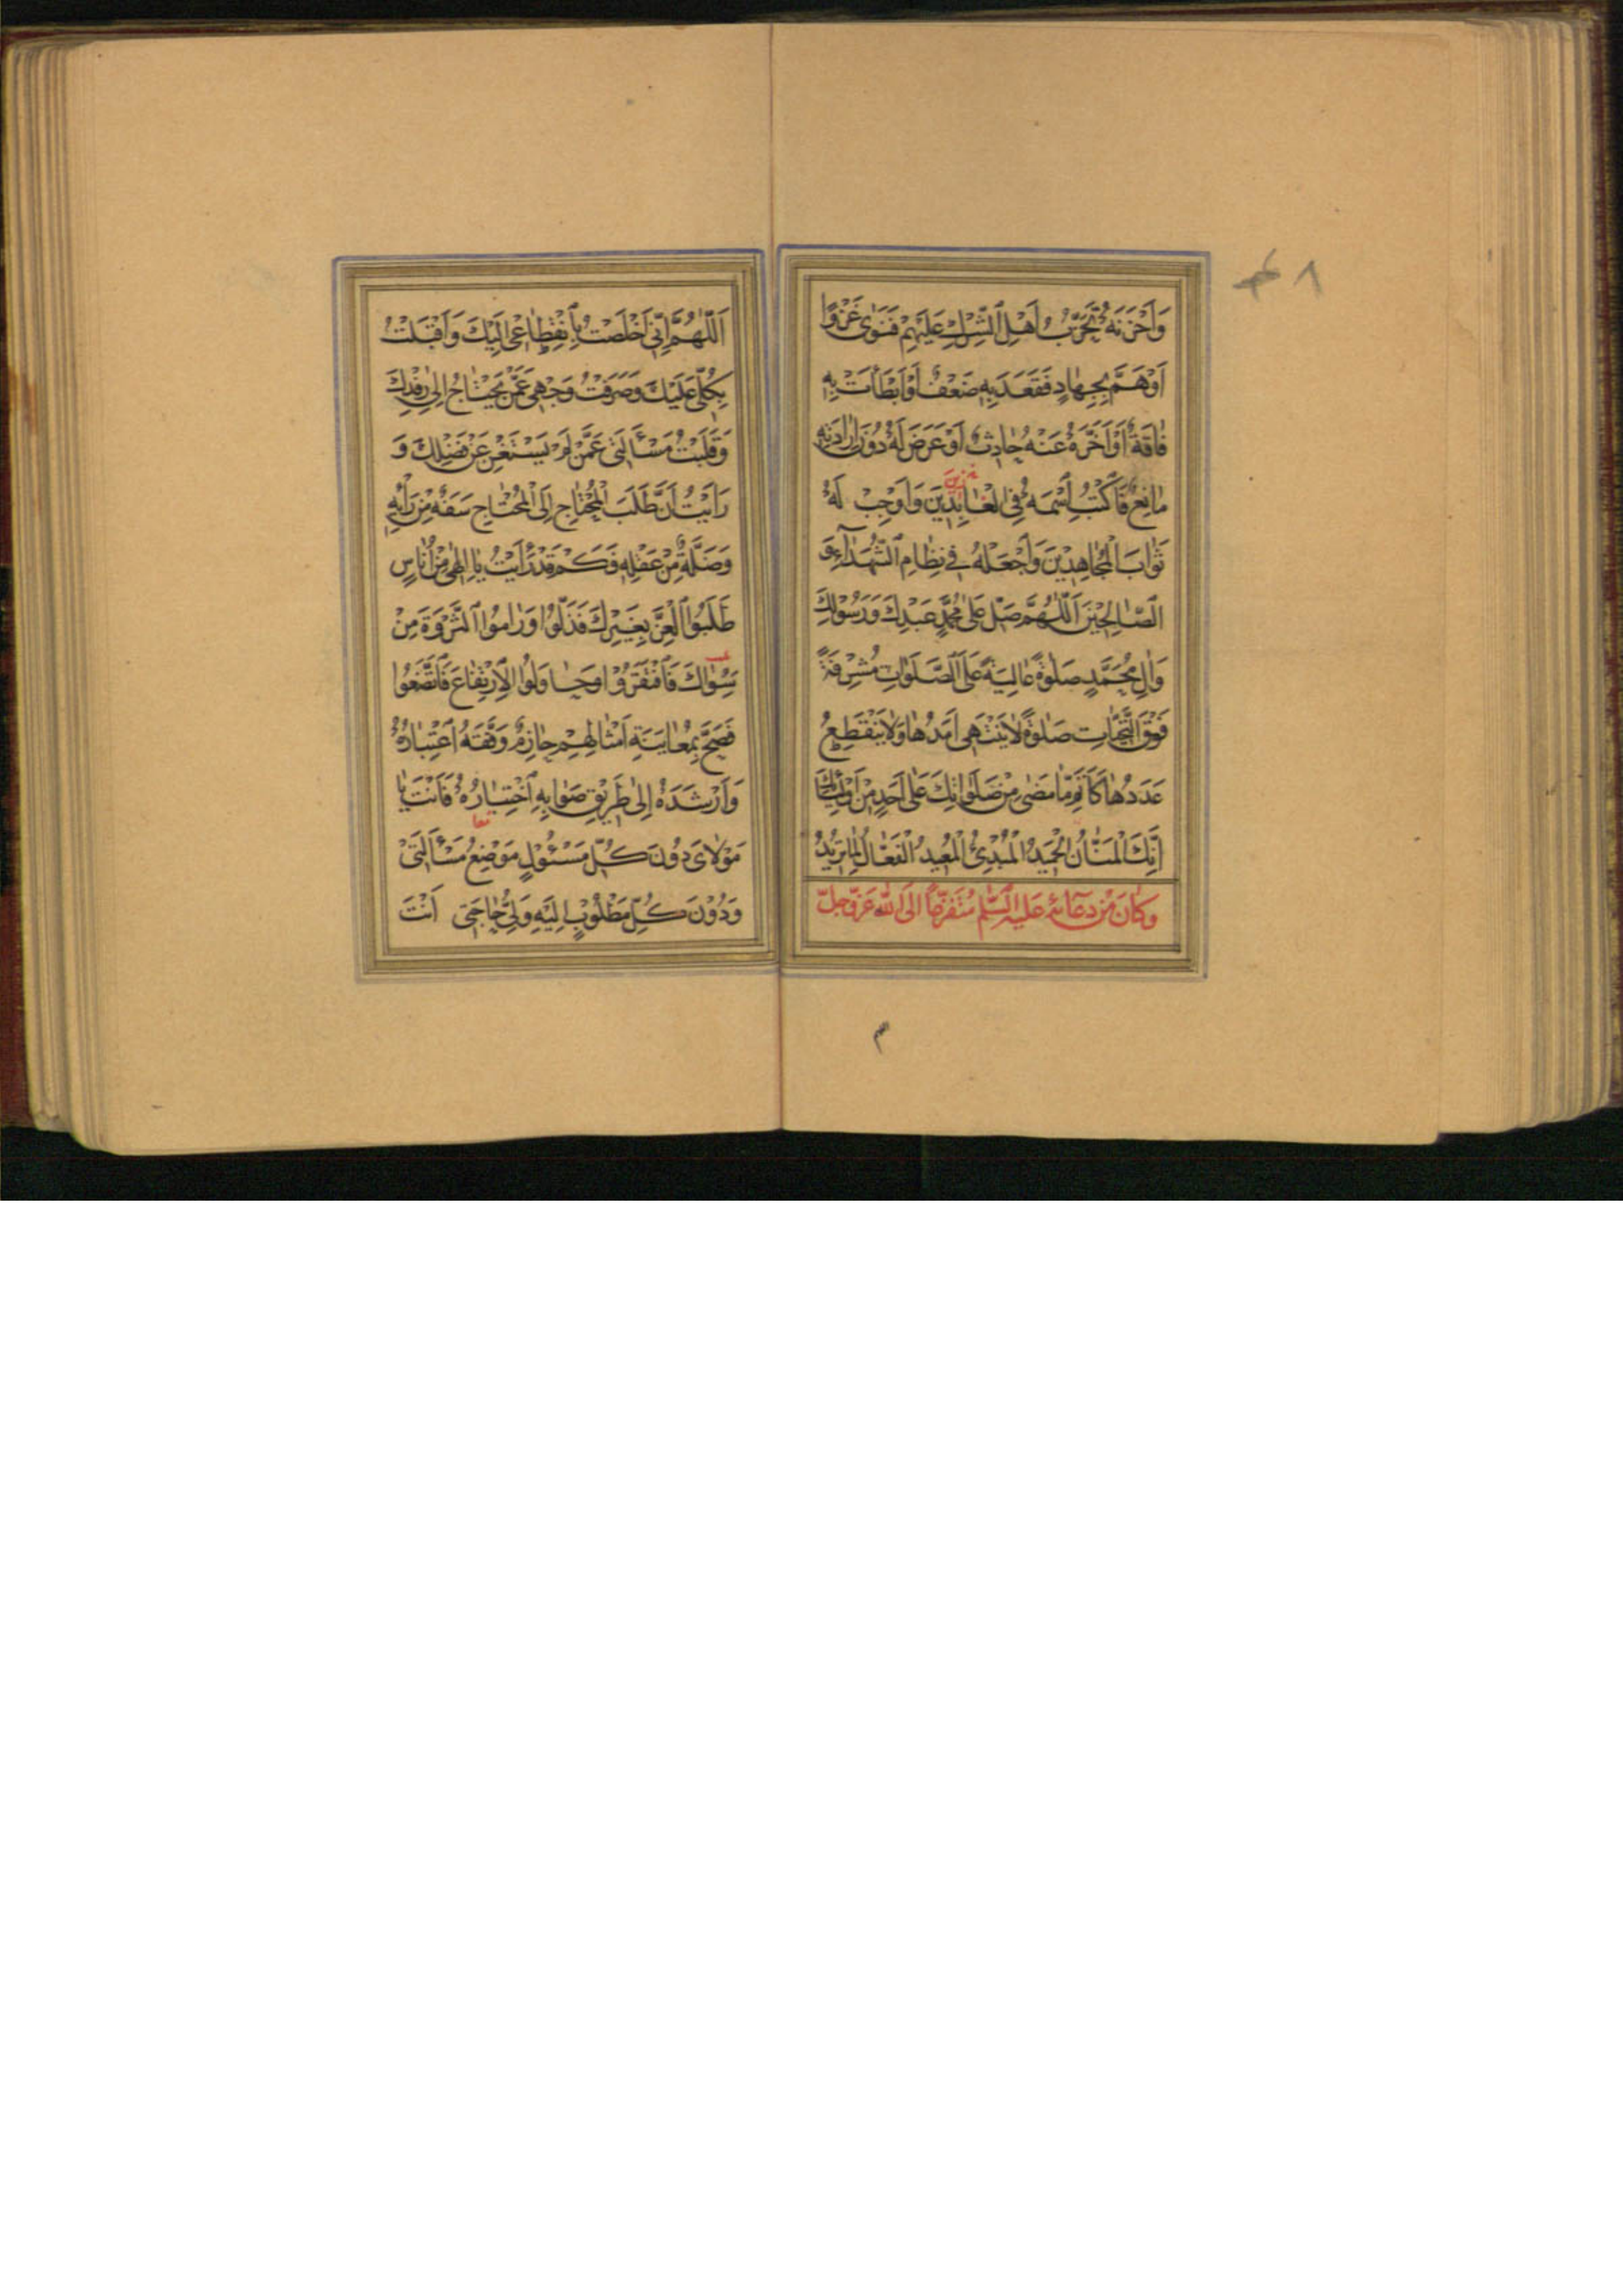 وَأَحْزَنَهُ تَحَزُّبُ أَهْلِ الشِّرْكِ عَلَيْهِمْ فَنَوىٰ غَزْوًا
أَوْ هَمَّ بِجِهَادٍ فَقَعَدَ بِهِ ضَعْفٌ أَوْ أَبْطَأَتْ بِهِ
فَاقَةٌ أَوْ أَخَّرَهُ عَنْهُ حَادِثٌ أَوْ عَرَضَ لَهُ دُونَ إِرَادَتِهِ
مَانِعٌ فَاكْتُبِ اسْمَهُ فِي الْعَابِدِينَ وَأَوْجِبْ لَهُ
ثَوَابَ الْمُجَاهِدِينَ وَاجْعَلْهُ فِي نِظَامِ الشُّهَدَاءِ وَ
الصَّالِحِينَ اَللّٰهُمَّ صَلِّ عَلىٰ مُحَمَّدٍ عَبْدِكَ وَرَسُولِكَ
وَآلِ مُحَمَّدٍ صَلٰوةً عَالِيَةً عَلَى الصَّلَوَاتِ مُشْرِفَةً
فَوْقَ التَّحِيَّاتِ صَلٰوةً لَا يَنْتَهِي أَمَدُهَا وَلَا يَنْقَطِعُ
عَدَدُهَا كَأَتَمِّ مَا مَضىٰ مِنْ صَلَوَاتِكَ عَلىٰ أَحَدٍ مِنْ أَوْلِيَائِكَ
إِنَّكَ الْمَنَّانُ الْحَمِيدُ الْمُبْدِئُ الْمُعِيدُ الْفَعَّالُ لِمَا تُرِيدُ
وَكَانَ مِنْ دُعَائِهِ عَلَيْهِ السَّلٰمُ مُتَفَزِّعًا إِلَى اللّٰهِ عَزَّ وَجَلَّ
م
اَللّٰهُمَّ إِنِّي أَخْلَصْتُ بِانْقِطَاعِي إِلَيْكَ وَأَقْبَلْتُ
بِكُلِّي عَلَيْكَ وَصَرَفْتُ وَجْهِي عَمَّنْ يَحْتَاجُ إِلىٰ رِفْدِكَ
وَقَلَبْتُ مَسْأَلَتِي عَمَّنْ لَمْ يَسْتَغْنِ عَنْ فَضْلِكَ وَ
رَأَيْتُ أَنَّ طَلَبَ الْمُحْتَاجِ إِلَى الْمُحْتَاجِ سَفَهٌ مِنْ رَأْيِهِ
وَضَلَّةٌ مِنْ عَقْلِهِ فَكَمْ قَدْ رَأَيْتُ يَا إِلٰهِي مِنْ أُنَاسٍ
طَلَبُوا الْعِزَّ بِغَيْرِكَ فَذَلُّوا وَرَامُوا الثَّرْوَةَ مِنْ
سِوَاكَ فَافْتَقَرُوا وَحَاوَلُوا الِارْتِفَاعَ فَاتَّضَعُوا
فَصَحَّ بِمُعَايَنَةِ أَمْثَالِهِمْ حَازِمٌ وَفَّقَهُ اعْتِبَارُهُ
وَأَرْشَدَهُ إِلىٰ طَرِيقِ صَوَابِهِ اخْتِيَارُهُ فَأَنْتَ يَا
مَوْلَايَ دُونَ كُلِّ مَسْئُولٍ مَوْضِعُ مَسْأَلَتِي
وَدُونَ كُلِّ مَطْلُوبٍ إِلَيْهِ وَلِيُّ حَاجَتِي أَنْتَ